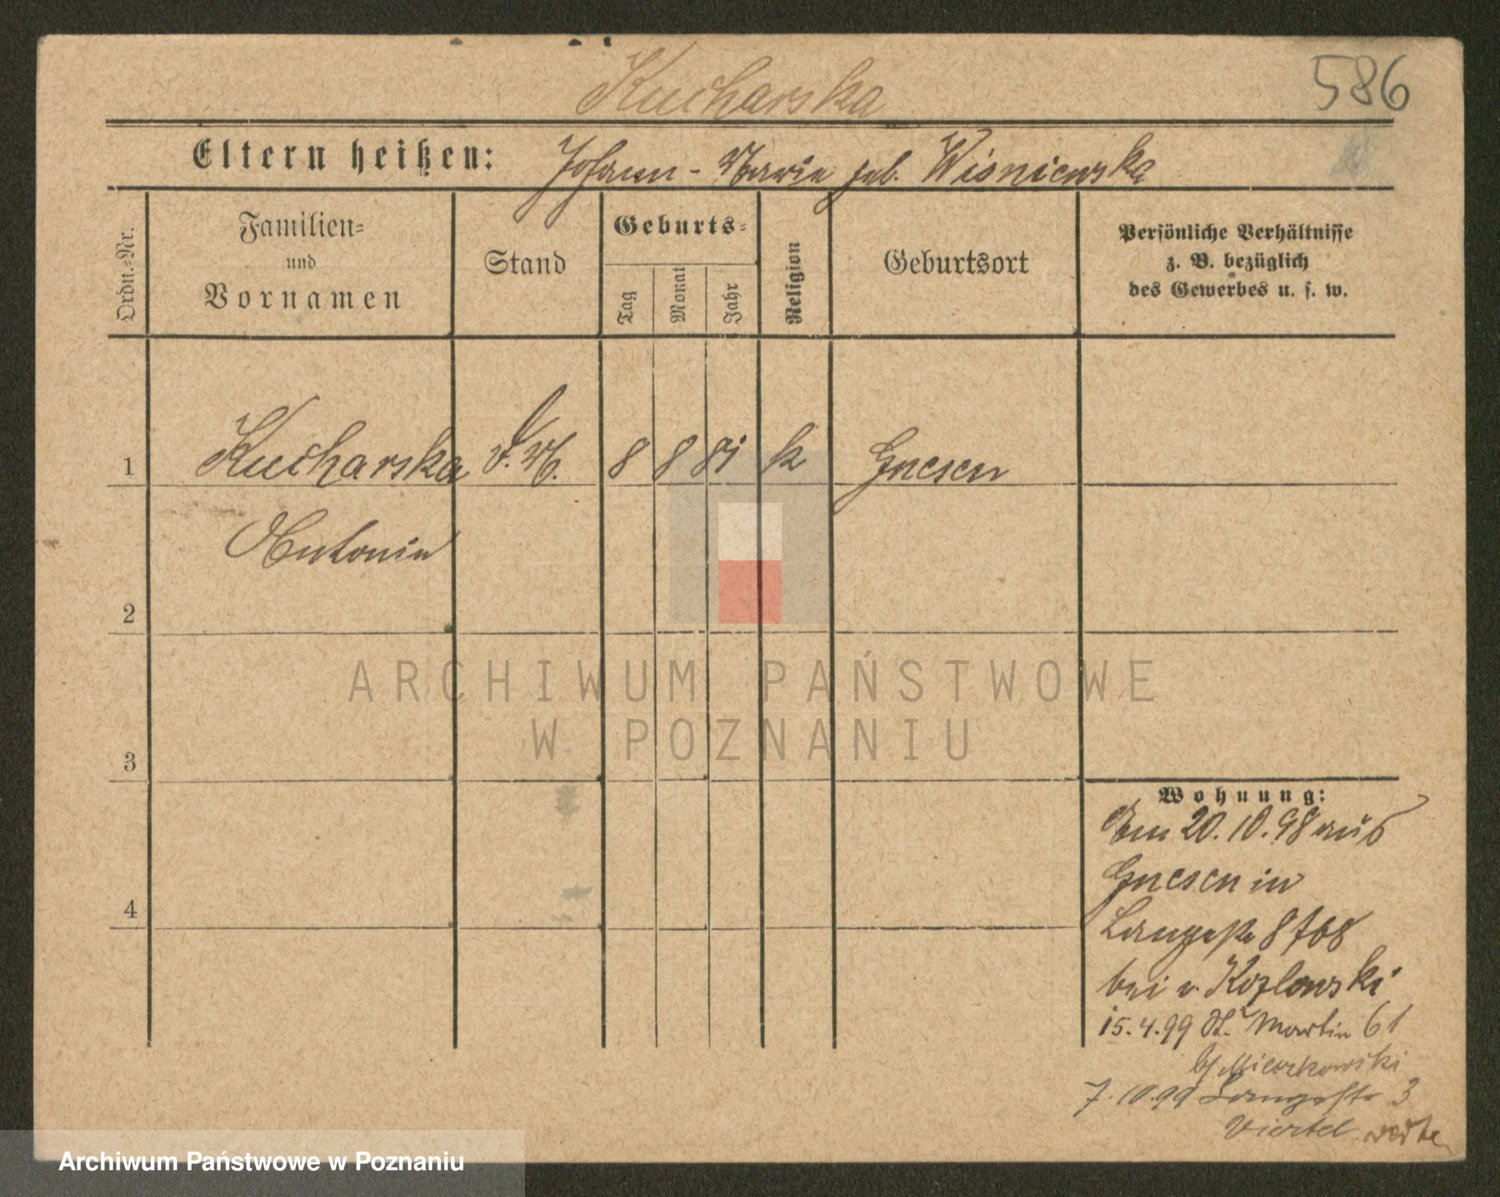 Kucharska
586
Eltern heißen: Johann - Marie geb. Wisniewska
Ordn.-Nr.
Familien- und Vornamen
Stand
Geburts-
Tag
Monat
Jahr
Religion
Geburtsort
Persönliche Verhältnisse
z. B. bezüglich
des Gewerbes u. s. w.
1 Kucharska D. M. 8 8 81 k Gnesen
Antonie
2
ARCHIWUM PAŃSTWOWE
W POZNANIU
3
Wohnung:
Am 20.10.98 aus
Gnesen in
4
Langestr 8
bei v Kozlowski
15.4.99 St. Martin 61
7.10.99 Langestr 3
Viertel
Archiwum Państwowe w Poznaniu